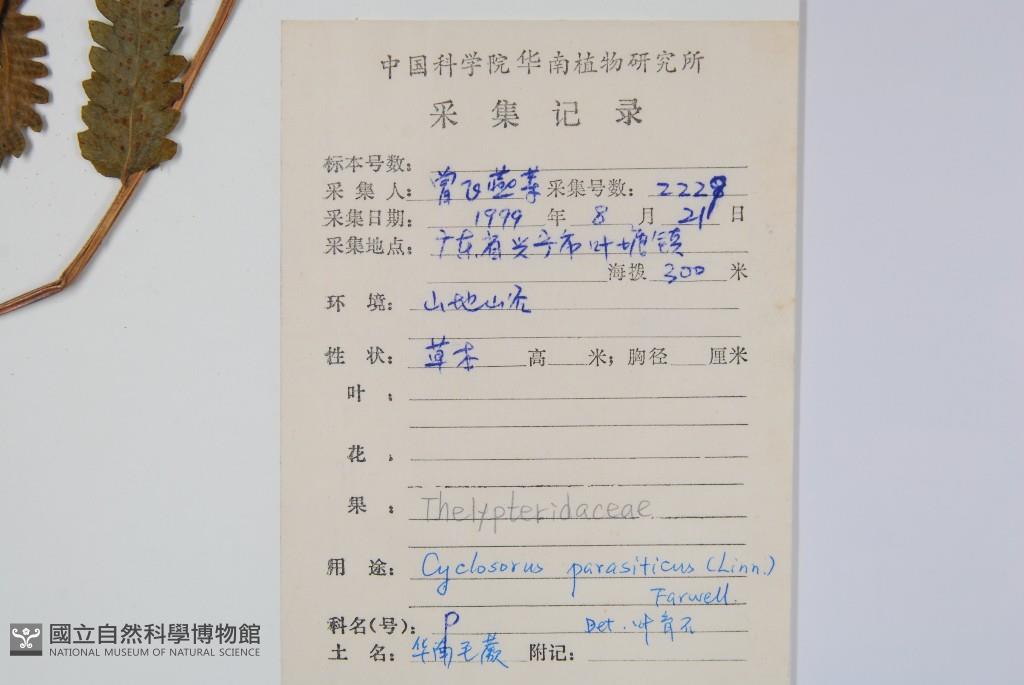 中国科学院华南植物研究所
采集记录
标本号数：
采集人：曾飞燕等 采集号数：2229
采集日期：1999年8月21日
采集地点：广东省兴宁市叶塘镇
海拨 300 米
环境：山地山谷
性状：草本 高 米；胸径 厘米
叶：
花：
果：Thelypteridaceae
用途：Cyclosorus parasiticus (Linn.)
Farwell.
科名(号)：P Det. 叶育石
土名：华南毛蕨 附记：
國立自然科學博物館
NATIONAL MUSEUM OF NATURAL SCIENCE